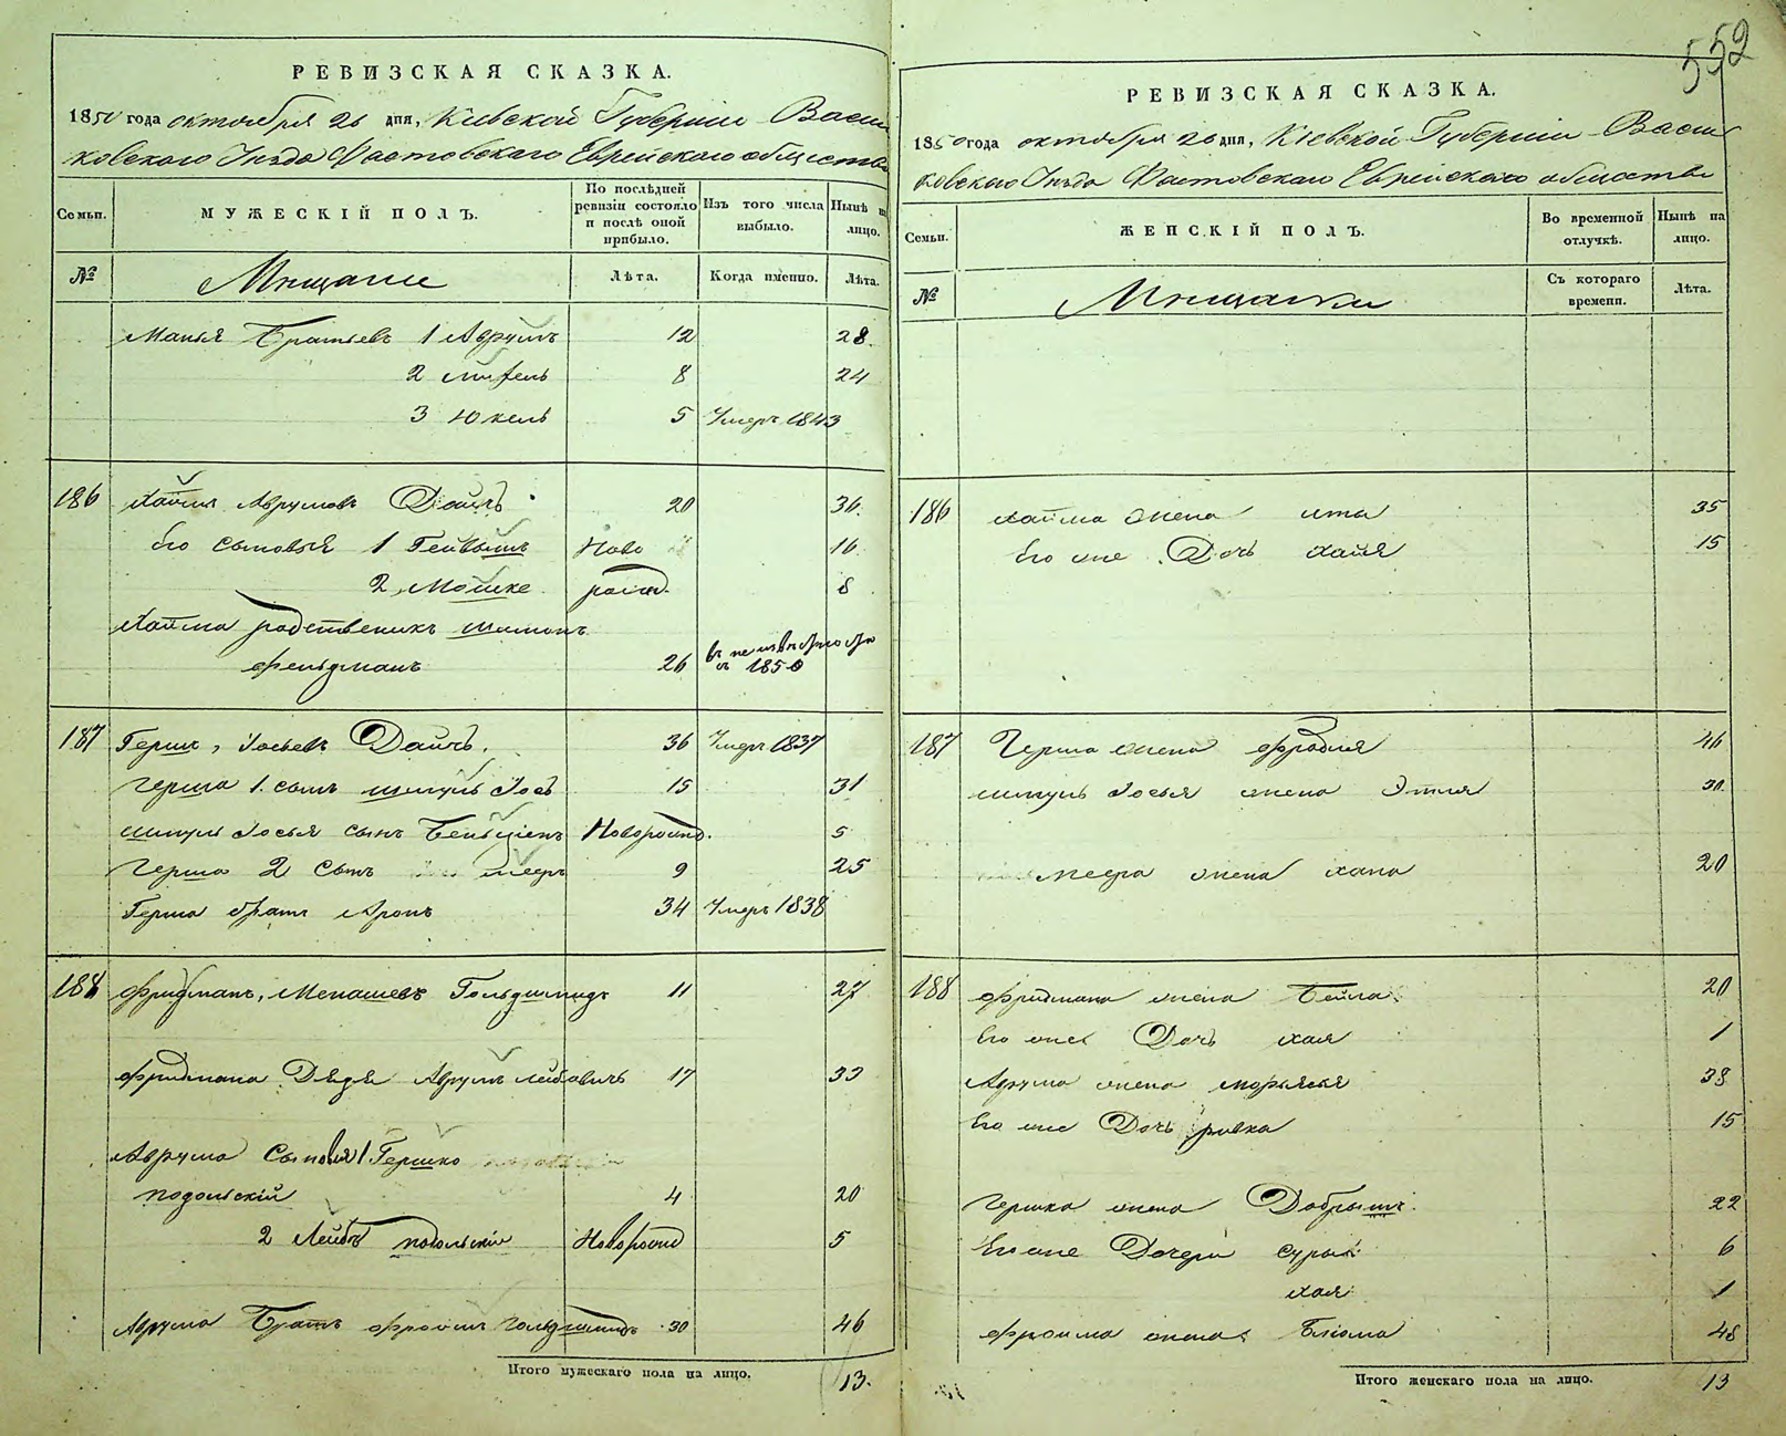 552
РЕВИЗСКАЯ СКАЗКА.
1850 года октября 26 дня, Киевской Губерніи Васил
ковского Уѣзда Фастовскаго Еврейскаго общества
Семьи. МУЖЕСКІЙ ПОЛЪ. По послѣдней ревизіи состояло и послѣ оной прибыло. Изъ того числа выбыло. Нынѣ на лицо.
№ Мѣщане Лѣта. Когда именно. Лѣта.
Братьевъ 1 Аврумъ 12 28.
2 8 24
3 Юкель 5 Умеръ 1843
186 Хаимъ Аврумовъ Дайчъ 20 36.
Его сыновья 1 Гейвышъ Ново 16
2 Мошке рожд. 8
Хаима родственикъ Шимонъ
Фельдманъ 26 въ неизвѣстно
съ 1850
187 Гершъ, Іосьевъ Дайчъ. 36 Умеръ 1837
Герша 1. сынъ Шмуль Іось 15 31
Шмуля Іосья сынъ Беньціенъ Новорожд. 5
Герша 2 сынъ Мееръ 9 25
Герша братъ Аронъ 34 Умеръ 1838
188 Фридманъ, Менашевъ Гольдшмидъ 11 27
Фридмана Дядя Аврумъ Лейбовичъ 17 33
Аврума Сыновья 1 Гершко
подольскій 4 20
2 Лейбъ подольскій Новорожд 5
Аврума Братъ Фроимъ Гольдшмидъ 30 46
Итого мужескаго пола на лицо. 13.
РЕВИЗСКАЯ СКАЗКА.
1850 года октября 26 дня, Кіевской Губерніи Васил
ковскаго Уѣзда Фастовскаго Еврейскаго общества
Семьи. ЖЕНСКІЙ ПОЛЪ. Во временной отлучкѣ. Нынѣ на лицо.
№ Мѣщанки Съ котораго времени. Лѣта.
186 Хаима жена Ита 35
Его же Дочь Хайя 15
187 Герша жена Фрадля 46
Шмуль Іосья жена Этля 30.
Меера жена Хана 20
188 Фридмана жена Бейла 20
Его же Дочь Хая 1
Аврума жена Марьясья 38
Его же Дочь Ривка 15
Гершка жена Добрышъ. 22
Его же Дочери Сура 6
Хая 1
Фроима жена Блюма 48
Итого женскаго пола на лицо. 13